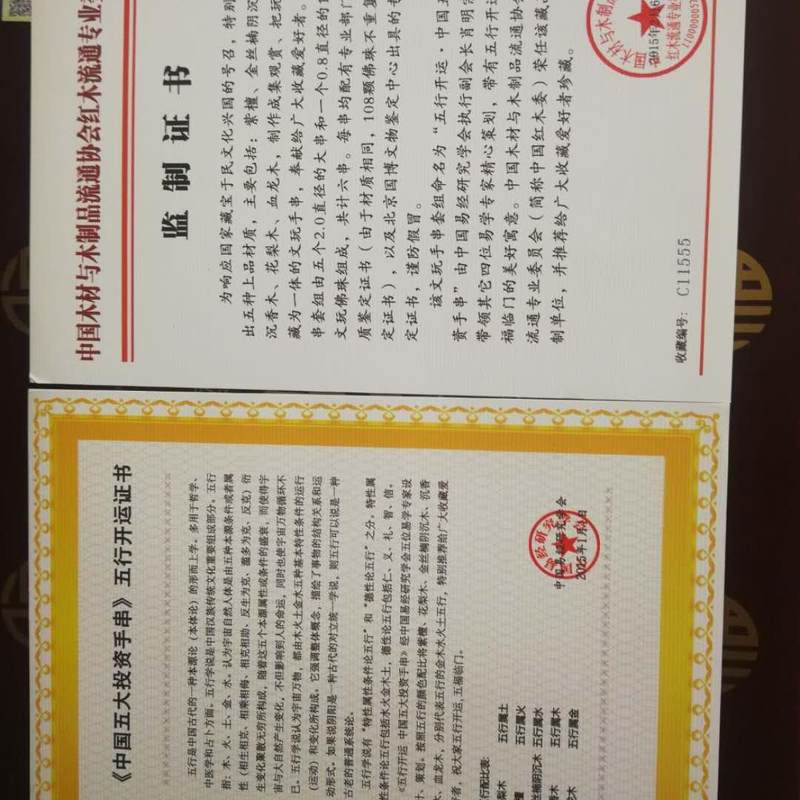 中国木材与木制品流通协会红木流通专业
监制证书
为响应国家藏宝于民文化兴国的号召，特别
出五种上品材质，主要包括：紫檀、金丝楠阴沉
沉香木、花梨木、血龙木，制作成集观赏、把玩
藏为一体的文玩手串，奉献给广大收藏爱好者。
串套组由五个2.0直径的大串和一个0.8直径的
文玩佛珠组成，共计六串。每串均配有专业部门
质鉴定证书（由于材质相同，108颗佛珠不重复
定证书），以及北京国博文物鉴定中心出具的
定证书，谨防假冒。
该文玩手串套组命名为“五行开运·中国五
资手串”由中国易经研究学会执行副会长肖明
带领其它四位易学专家精心策划，带有五行开运
福临门的美好寓意。中国木材与木制品流通协会
流通专业委员会（简称中国红木委）荣任该藏
制单位，并推荐给广大收藏爱好者珍藏。
收藏编号：C11555
《中国五大投资手串》五行开运证书
五行是中国古代的一种本源论（本体论）的形而上学，多用于哲学、
中医学和占卜方面。五行学说是中国汉族传统文化重要组成部分。五行
指：木、火、土、金、水。认为宇宙自然人体是由五种本源条件或者属
性（相生相克、相乘相侮、相克相助、反生为克、滥多为克、反克）衍
生变化聚散无穷所构成，随着这五个本源属性或条件的盛衰，而使得宇
宙与大自然产生变化，不但影响到人的命运，同时也使宇宙万物循环不
已。五行学说认为宇宙万物，都由木火土金水五种基本特性条件的运行
（运动）和变化所构成。它强调整体概念，描绘了事物的结构关系和运
动形式。如果说阴阳是一种古代的对立统一学说，则五行可以说是一种
古老的普通系统论。
五行学说有“特性属性条件论五行”和“德性论五行”之分，特性属
性条件论五行包括水火金木土，德性论五行包括仁、义、礼、智、信。
《五行开运 中国五大投资手串》经中国易经研究学会五位易学专家设
计、策划。按照五行的颜色配比将紫檀、花梨木、金丝楠阴沉木、沉香
木、血龙木，分别代表五行的金木水火土五行，特别推荐给广大收藏爱
者，祝大家五行开运，五福临门。
行配比表：
梨木 五行属土
檀 五行属火
丝楠阴沉木 五行属水
香木 五行属木
木 五行属金
中国易经研究学会